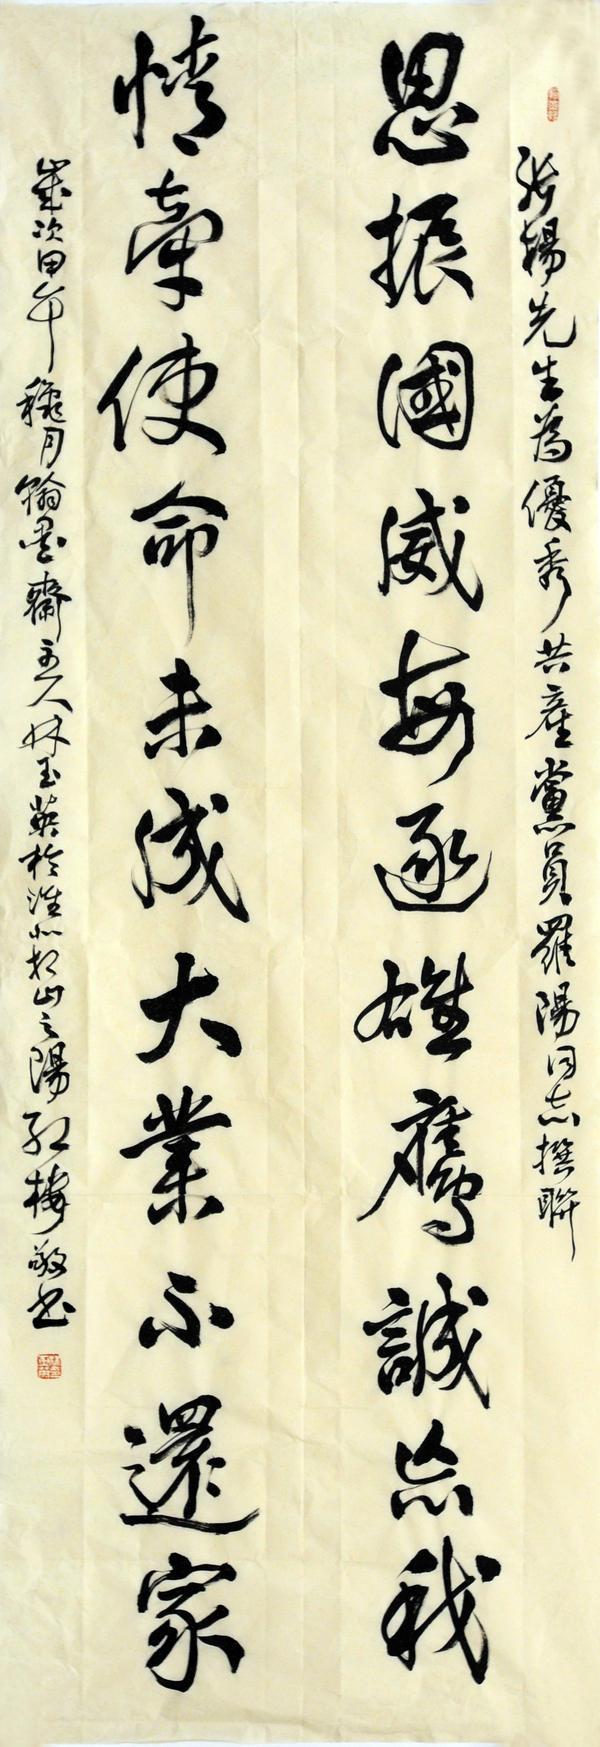 張楊先生為優秀共產黨員羅陽同志撰聯
思振國威每逐雄鷹誠忘我
情牽使命未成大業不還家
歲次甲午穐月翰墨齋主人林玉英於淮北相山之陽紅梅敬書